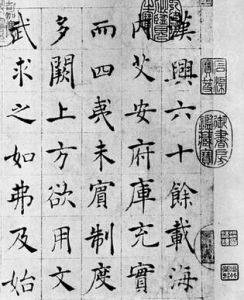 漢興六十餘載海
內艾安府庫充實
而四夷未賓制度
多闕上方欲用文
武求之如弗及始
御書房
鑑藏寶